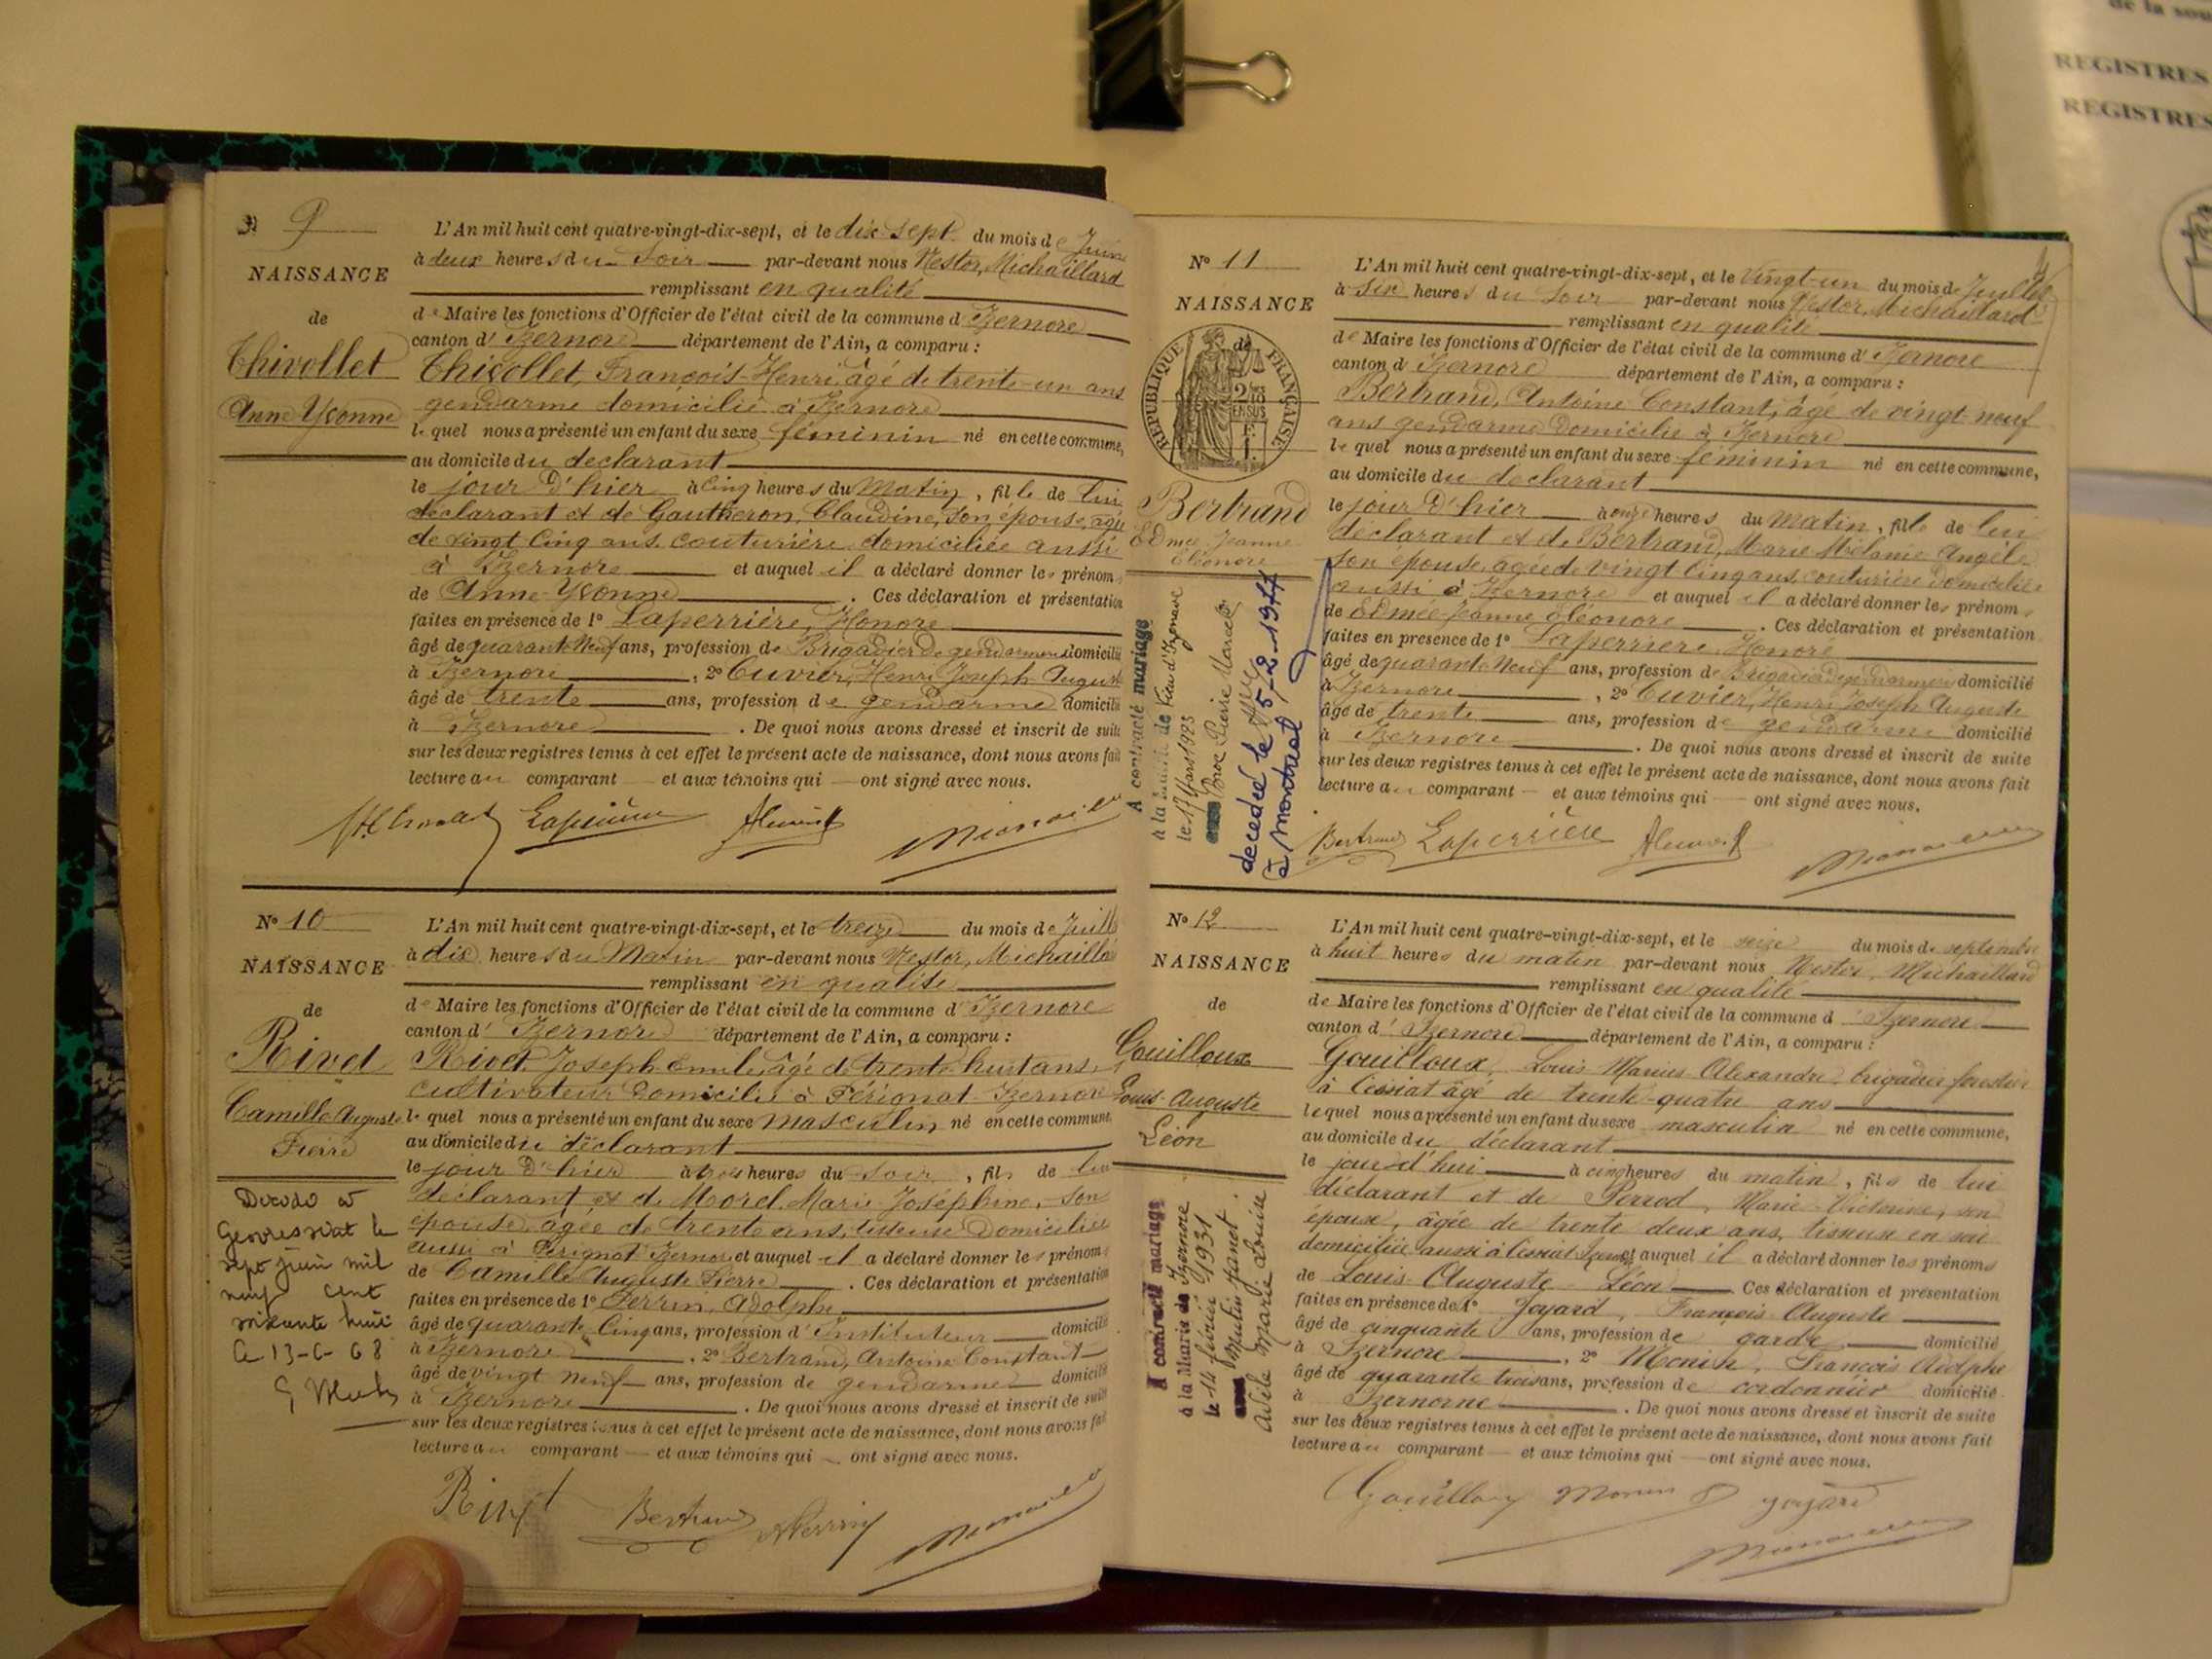 N° 9
NAISSANCE
de
Thivollet
Anne Yvonne
L'An mil huit cent quatre-vingt-dix-sept, et le dix sept du mois de Juin
à deux heures du Soir par-devant nous Nestor, Michaillard
remplissant en qualité
de Maire les fonctions d'Officier de l'état civil de la commune d'Izernore
canton d'Izernore département de l'Ain, a comparu :
Thivollet, François Henri, âgé de trente-un ans
gendarme domicilié à Izernore
lequel nous a présenté un enfant du sexe féminin né en cette commune,
au domicile du déclarant
le jour d'hier à cinq heures du Matin, fille de lui
déclarant et de Gautheron, Claudine, son épouse, agée
de vingt cinq ans couturière domiciliée aussi
à Izernore et auquel il a déclaré donner les prénoms
de Anne-Yvonne. Ces déclaration et présentation
faites en présence de 1° Laperrière, Honoré
âgé de quarante Neuf ans, profession de Brigadier de gendarmerie domicilié
à Izernore, 2° Cuvier, Henri Joseph August
âgé de trente ans, profession de gendarme domicilié
à Izernore. De quoi nous avons dressé et inscrit de suite
sur les deux registres tenus à cet effet le présent acte de naissance, dont nous avons fait
lecture au comparant et aux témoins qui ont signé avec nous.
Laperrière
N° 10
NAISSANCE
de
Rivet
Camille Auguste
Pierre
Décédé à
Geovressiat le
sept juin mil
neuf cent
soixante huit
Le 13-6-68
L'An mil huit cent quatre-vingt-dix-sept, et le treize du mois de Juill
à dix heures du Matin par-devant nous Nestor, Michailla
remplissant en qualité
de Maire les fonctions d'Officier de l'état civil de la commune d'Izernore
canton d'Izernore département de l'Ain, a comparu :
Rivet, Joseph Emile, âgé de trente huit ans,
cultivateur domicilié à Pérignat-Izernore
lequel nous a présenté un enfant du sexe masculin né en cette commune
au domicile du déclarant
le jour d'hier à trois heures du soir, fils de lui
déclarant et de Morel Marie Joséphine, son
épouse, agée de trente ans, tisseuse domiciliée
aussi à Pérignat Izernore et auquel il a déclaré donner les prénoms
de Camille Auguste Pierre. Ces déclaration et présentation
faites en présence de 1° Perrin, Adolphe
âgé de quarante Cinq ans, profession d'Instituteur domicilié
à Izernore, 2° Bertrand, Antoine Constant
âgé de vingt neuf ans, profession de gendarme domicilié
à Izernore. De quoi nous avons dressé et inscrit de suite
sur les deux registres tenus à cet effet le présent acte de naissance, dont nous avons fait
lecture au comparant et aux témoins qui ont signé avec nous.
Rivet Bertrand APerrin
N° 11
NAISSANCE
de
RÉPUBLIQUE FRANÇAISE
Bertrand
Edmée Jeanne
Eléonore
A contracté mariage
à la Mairie de
le 17 Mars 1923
avec Pierre Marcel
décédée le 5-2-1977
à Montréal
L'An mil huit cent quatre-vingt-dix-sept, et le Vingt-un du mois de Juillet
à Six heures du Soir par-devant nous Nestor, Michaillard
remplissant en qualité
de Maire les fonctions d'Officier de l'état civil de la commune d'Izernore
canton d'Izernore département de l'Ain, a comparu :
Bertrand, Antoine Constant, âgé de vingt neuf
ans gendarme domicilié à Izernore
lequel nous a présenté un enfant du sexe féminin né en cette commune,
au domicile du déclarant
le jour d'hier à onze heures du Matin, fille de lui
déclarant et de Bertrand, Marie Mélanie Angèle
son épouse, agée de vingt cinq ans, couturière domiciliée
aussi à Izernore et auquel il a déclaré donner les prénoms
de Edmée-Jeanne Eléonore. Ces déclaration et présentation
faites en présence de 1° Laperriere, Honoré
âgé de quarante Neuf ans, profession de Brigadier de gendarmerie domicilié
à Izernore, 2° Cuvier, Henri Joseph Auguste
âgé de trente ans, profession de gendarme domicilié
à Izernore. De quoi nous avons dressé et inscrit de suite
sur les deux registres tenus à cet effet le présent acte de naissance, dont nous avons fait
lecture au comparant et aux témoins qui ont signé avec nous.
Bertrand Laperrière
N° 12
NAISSANCE
de
Gouilloux
Louis-Auguste
Léon
A contracté mariage
à la Mairie de Izernore
le 14 février 1931
avec Mulin Janet
Adèle Marie Louise
L'An mil huit cent quatre-vingt-dix-sept, et le seize du mois de septembre
à huit heures du matin par-devant nous Nestor, Michaillard
remplissant en qualité
de Maire les fonctions d'Officier de l'état civil de la commune d'Izernore
canton d'Izernore département de l'Ain, a comparu :
Gouilloux, Louis Marius Alexandre, brigadier forestier
à Cessiat âgé de trente-quatre ans
lequel nous a présenté un enfant du sexe masculin né en cette commune,
au domicile du déclarant
le jour d'hui à cinq heures du matin, fils de lui
déclarant et de Perrod, Marie Victorine, son
épouse, âgée de trente deux ans, tisseuse en soie
domiciliée aussi à Cessiat et auquel il a déclaré donner les prénoms
de Louis Auguste Léon. Ces déclaration et présentation
faites en présence de 1° Joyard, François Auguste
âgé de cinquante ans, profession de garde domicilié
à Izernore, 2° Monin, François Adolphe
âgé de quarante trois ans, profession de cordonnier domicilié
à Izernorne. De quoi nous avons dressé et inscrit de suite
sur les deux registres tenus à cet effet le présent acte de naissance, dont nous avons fait
lecture au comparant et aux témoins qui ont signé avec nous.
Gouilloux Monin joyard
de la sou
REGISTRES
REGISTRES